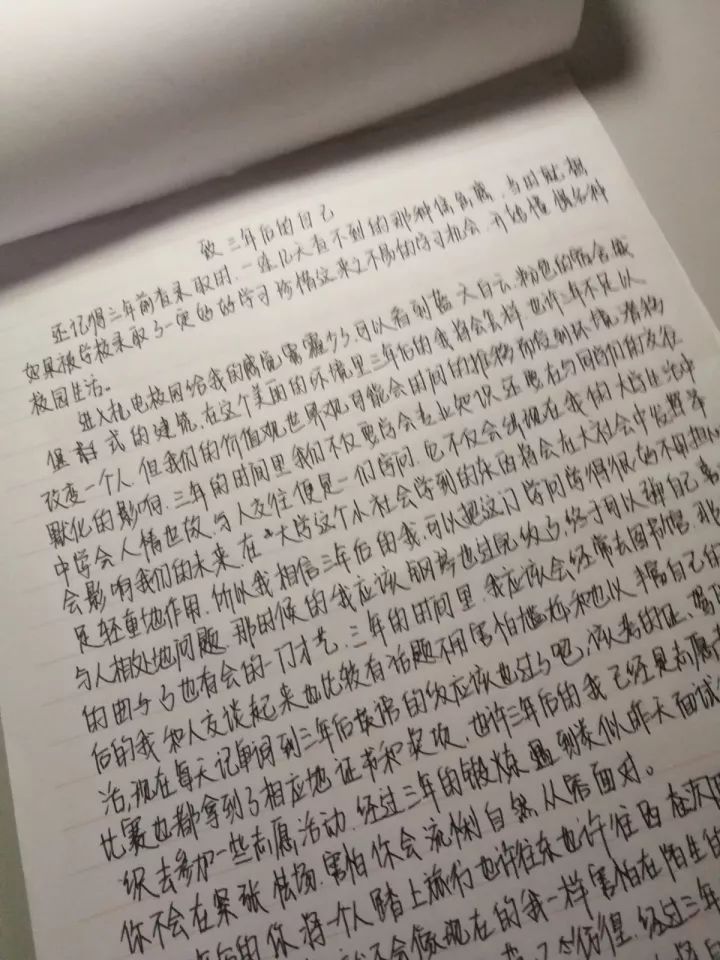 致三年后的自己
还记得三年前查录取时,一连几天查不到的那种焦急感,当时就想
如果被学校录取了一定好好学习珍惜这来之不易的学习机会,开始憧憬各种
校园生活。
进入机电校园给我的感觉雾霾少了,可以看到蓝天白云,粉色的宿舍俄
式的建筑,在这个美丽的环境里三年后的我将会怎样,也许三年不足以
改变一个人,但我们的价值观世界观可能会时间的推物而受到环境潜物
默化的影响,三年的时间里我们不仅要学会专业知识,还要在与同学们的交往
中学会人情世故,与人交往便是一们学问,它不仅会出现在我的大学生活中
会影响我们的未来,在大学这个小社会学到的东西将会在大社会中发挥举
足轻重地作用,所以我相信三年后的我,可以把这门学问学得很好不用担心
与人相处地问题,那时候的我应该钢琴也过完级了,终于可以弹自己喜
的曲子了也有会的一门才艺,三年的时间里,我应该会经常去图书馆,那
后的我和人交谈起来也比较有话题不用害怕尴尬和也以丰富自己的
活,现在每天记单词到三年后英语的级应该也过了吧,该考的证、喝
比赛也都拿到了相应地证书和奖项,也许三年后的我已经是志愿
织去参加一些志愿活动,经过三年的锻炼遇到类似昨天面试
你不会在紧张怯场,害怕你会流利自然,从容面对。
年后的你,将一个人踏上旅行也许往东也许往西
就不会像现在的我一样害怕在陌生的
彷徨,经过三年